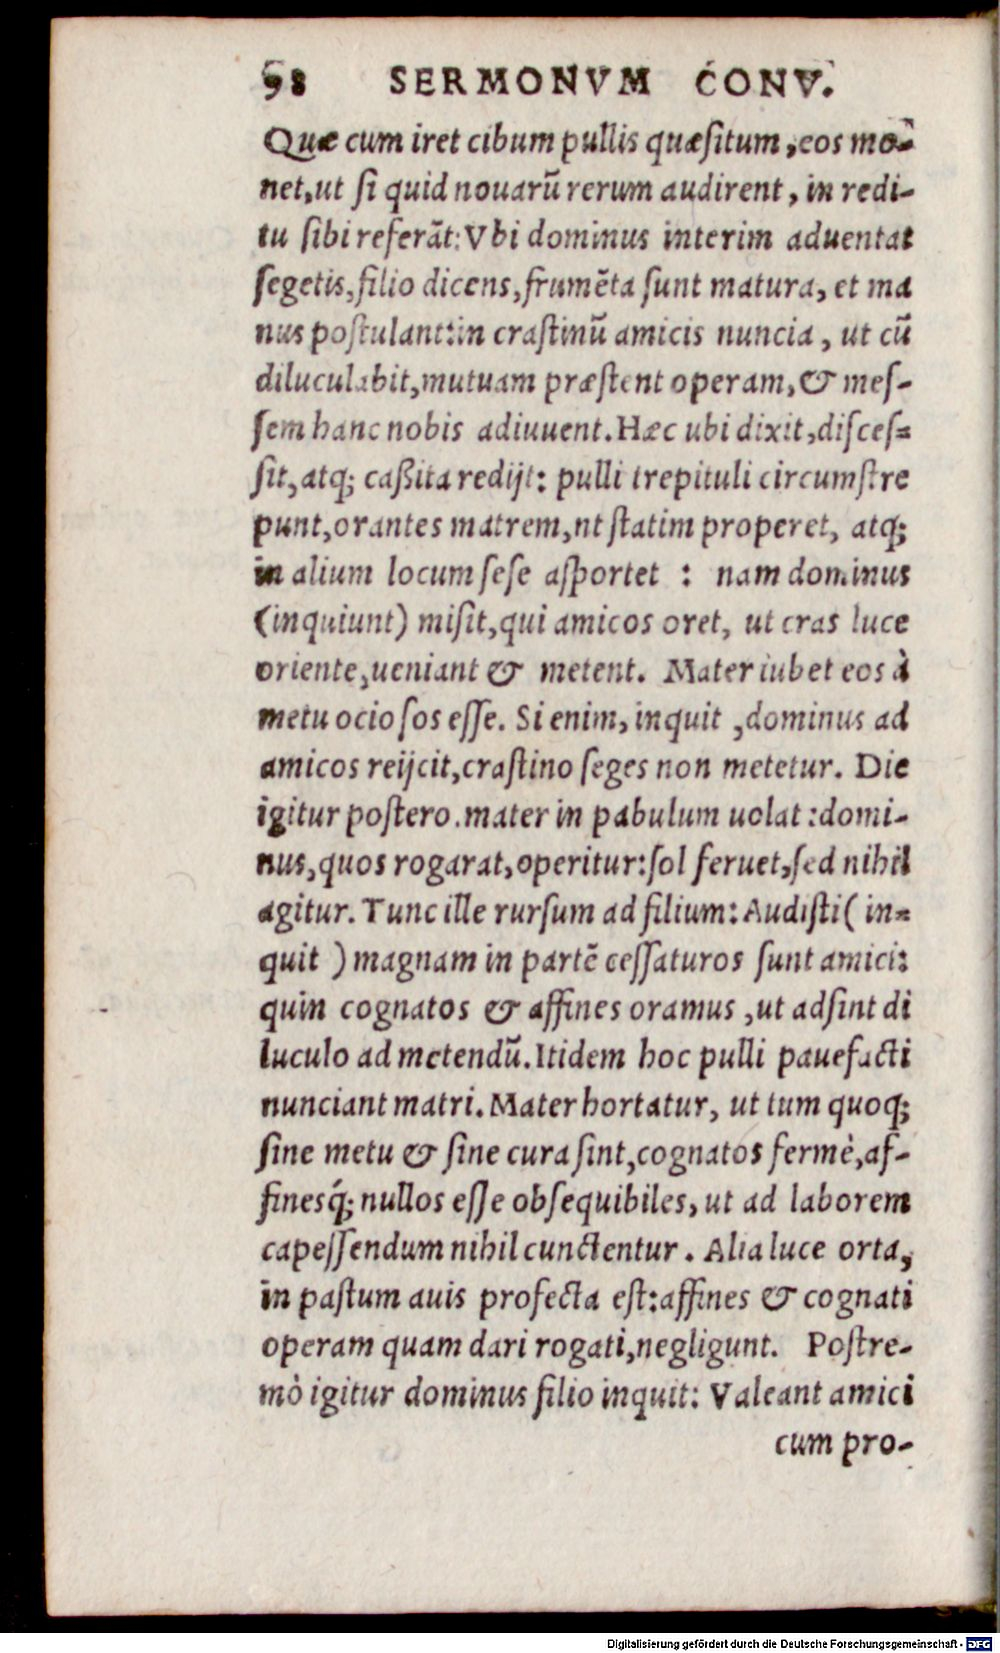 98 SERMONVM CONV.
Quæ cum iret cibum pullis quæſitum, eos mo-
net, ut ſi quid nouarū rerum audirent, in redi-
tu ſibi referāt: Vbi dominus interim aduentat
ſegetis, filio dicens, frumēta ſunt matura, et ma
nus poſtulant: in craſtinū amicis nuncia, ut cū
diluculabit, mutuam præſtent operam, & meſ-
ſem hanc nobis adiuuent. Hæc ubi dixit, diſceſ-
ſit, atq; caßita redijt: pulli trepituli circumſtre
punt, orantes matrem, nt ſtatim properet, atq;
in alium locum ſeſe aſportet : nam dominus
(inquiunt) miſit, qui amicos oret, ut cras luce
oriente, ueniant & metent. Mater iubet eos à
metu ocioſos eſſe. Si enim, inquit, dominus ad
amicos reijcit, craſtino ſeges non metetur. Die
igitur poſtero. mater in pabulum uolat: domi-
nus, quos rogarat, operitur: ſol feruet, ſed nihil
agitur. Tunc ille rurſum ad filium: Audiſti (in-
quit) magnam in partē ceſſaturos ſunt amici:
quin cognatos & affines oramus, ut adſint di
luculo ad metendū. Itidem hoc pulli pauefacti
nunciant matri. Mater hortatur, ut tum quoq;
ſine metu & ſine cura ſint, cognatos fermè, af-
finesq́; nullos eſſe obſequibiles, ut ad laborem
capeſſendum nihil cunctentur. Alia luce orta,
in paſtum auis profecta eſt: affines & cognati
operam quam dari rogati, negligunt. Poſtre-
mò igitur dominus filio inquit: Valeant amici
cum pro-
Digitalisierung gefördert durch die Deutsche Forschungsgemeinschaft - DFG